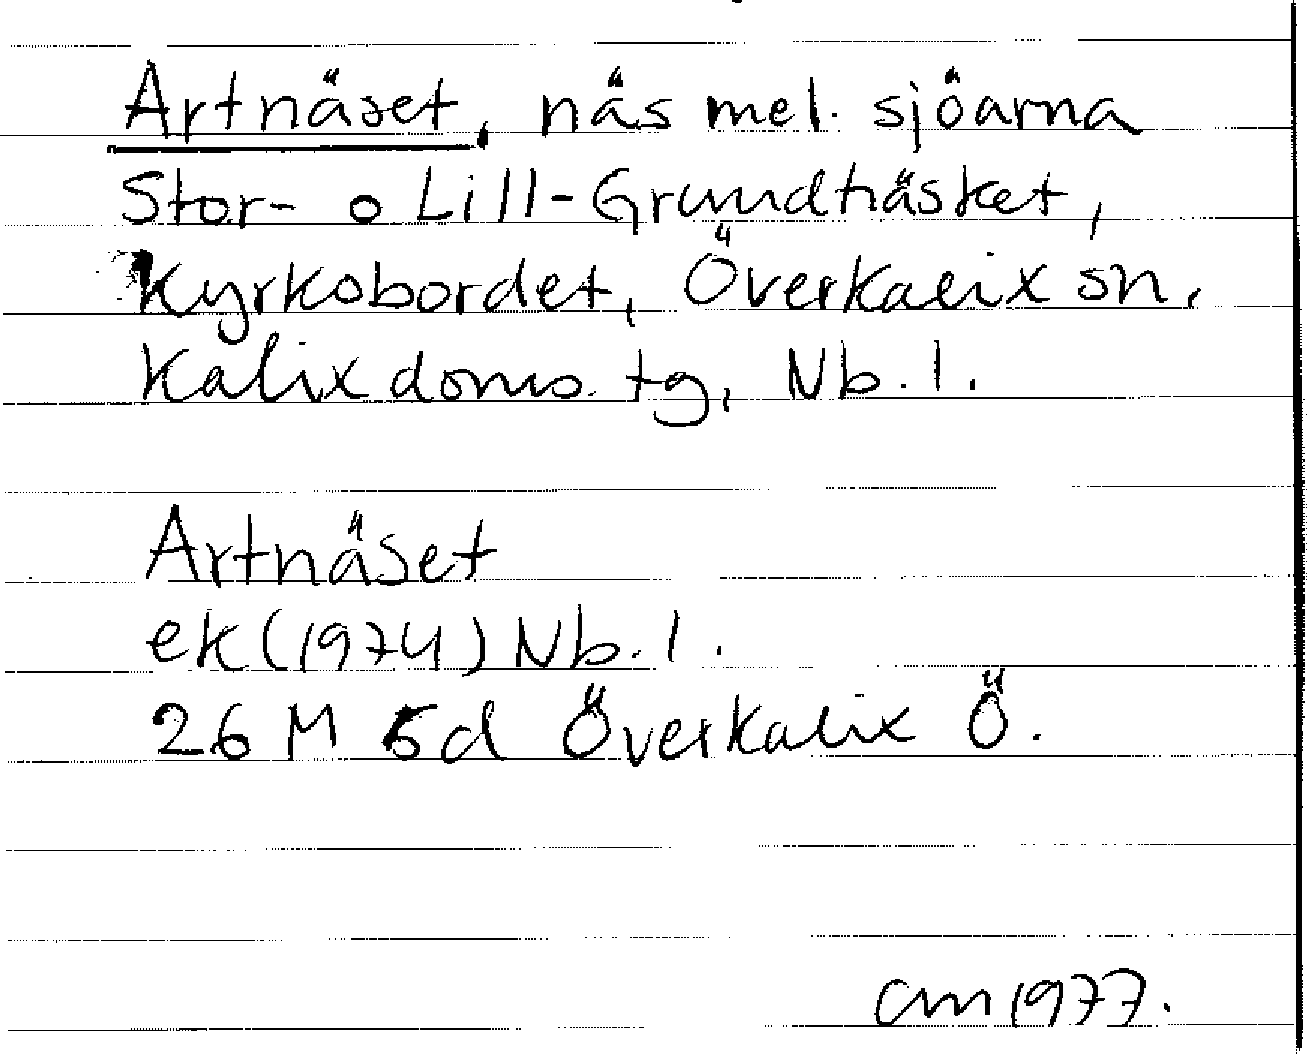 Artnäset, näs mel. sjöarna
Stor- o Lill-Grundträsket,
Kyrkobordet, Överkalix sn,
Kalix doms. tg, Nb. l.
Artnäset
ek (1974) Nb. l.
26 M 5d Överkalix Ö.
cm 1977.